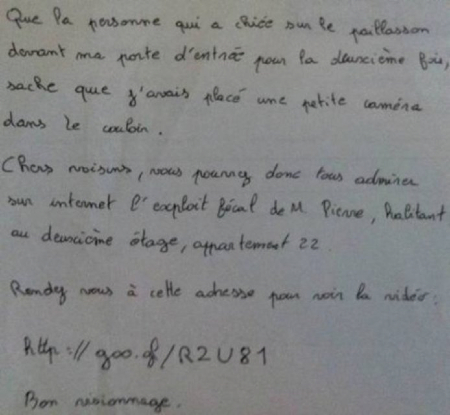 Que la personne qui a chiée sur le paillasson
devant ma porte d'entrée pour la deuxième fois,
sache que j'avais placé une petite caméra
dans le couloir.
Chers voisins, vous pourrez donc tous admirer
sur internet l'exploit fécal de M. Pierre, habitant
au deuxième étage, appartement 22
Rendez vous à cette adresse pour voir la vidéo :
http://goo.gl/R2U81
Bon visionnage.